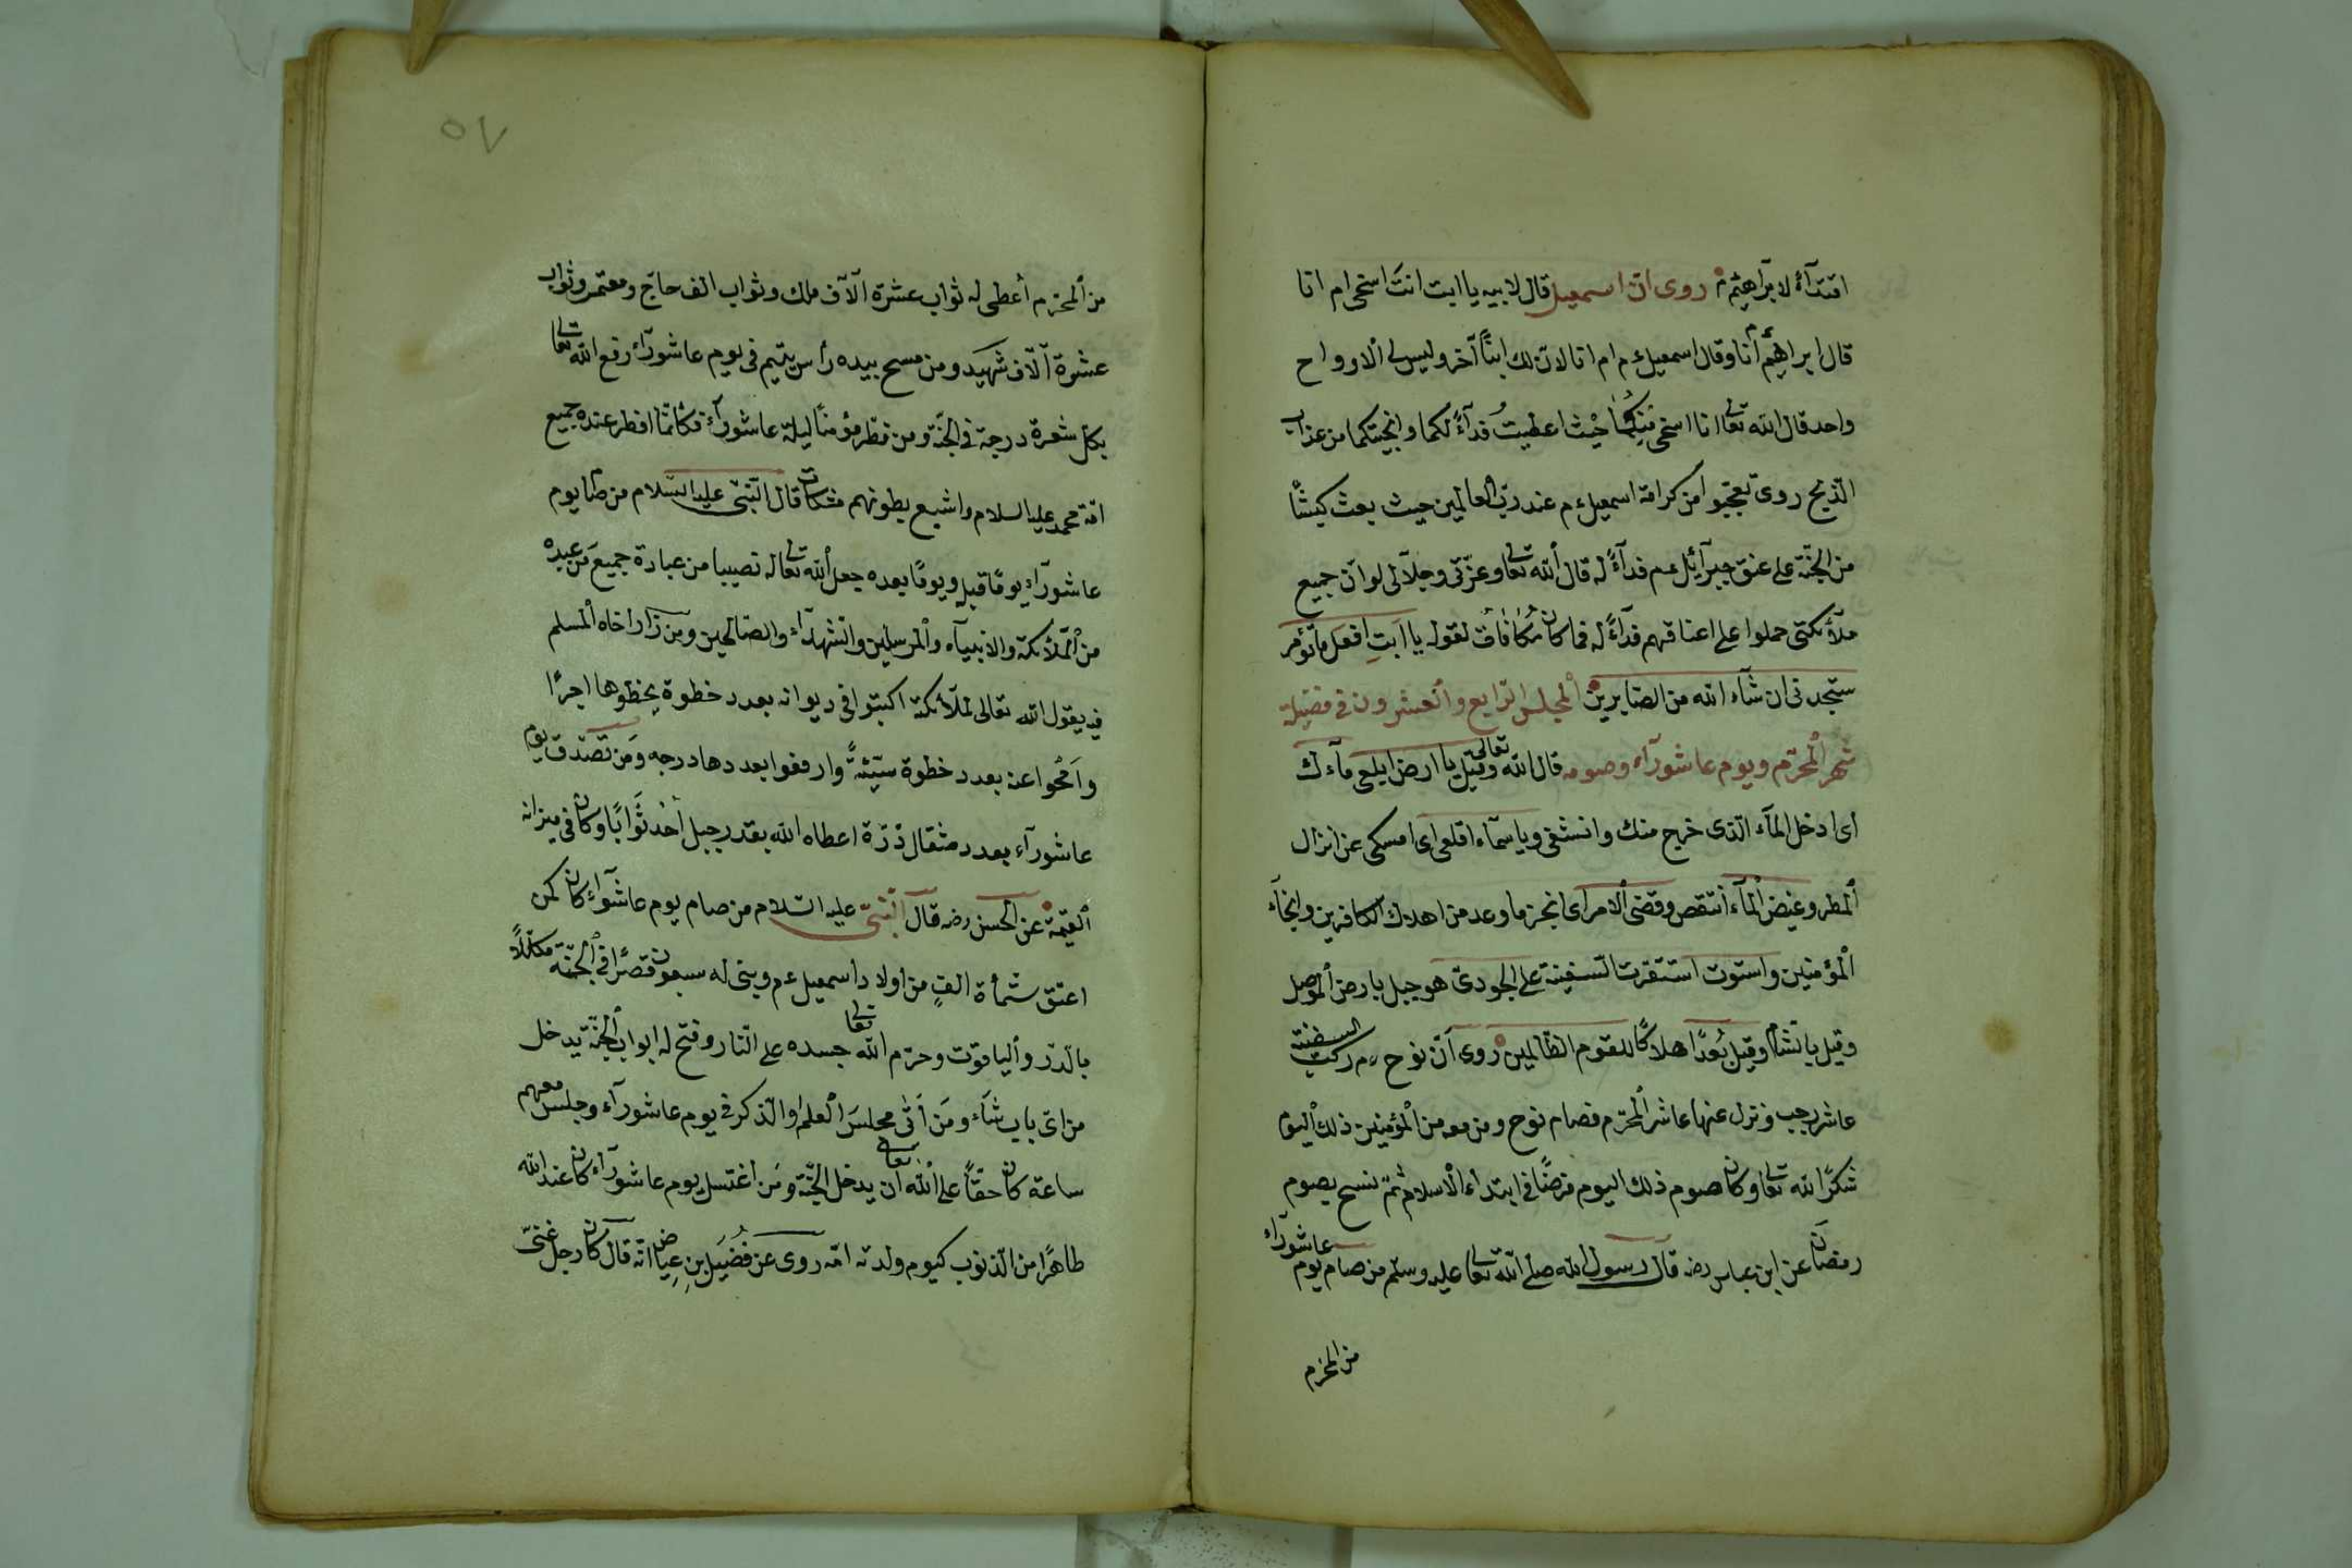 اقتدآءً لابرآهيم م روى ان اسمعيل قال لابيه يا ابت انت اسخى ام انا
قال ابراهيم ءم أنا وقال اسمعيل ءم ام انا لان لك ابنًا آخر وليس لى الا روواح
واحد قال الله تعا انا اسخى منكما حيث اعطيت فدآءً لكما وانجيتكما من عذاب
الذبح روى تعجبوا من كرامة اسمعيل ءم عند رب العالمين حيث بعث كبشًا
من الجنة على عنق جبرآئيل عم فدآءً له قال الله تعا وعزتى وجلالى لو ان جميع
ملآئكتى حملوا على اعناقهم فدآءً له فما كان مكافات لقوله يا ابت افعل ما تؤمر
ستجدنى ان شآء الله من الصابرين المجلس الرابع والعشرون فى فضيلة
شهر المحرم ويوم عاشورآء وصومه قال الله تعالى وقيل يا ارض ابلعى مآءك
اى ادخل المآء الذى خرج منك وانشفى ويا سمآء اقلعى اى امسكى عن انزال
المطر وغيض المآء انتقص وقضى الامر اى انجز ما وعد من اهلاك الكافرين وانجآء
المؤمنين واستوت استقرت السفينة على الجودى هو جبل بارض الموصل
وقيل بالشام وقيل بُعدًا هلاكًا للقوم الظالمين روى ان نوح ءم ركب السفينة
عاشر رجب ونزل عنها عاشر المحرم فصام نوح ومن معه من المؤمنين ذلك اليوم
شكرًا لله تعا وكان صوم ذلك اليوم فرضًا فى ابتداء الاسلام ثم نسخ بصوم
رمضان عن ابن عباس رضه قال رسول الله صلى الله تعا عليه وسلم من صام يوم عاشورآء
من المحرم
٥٧
من المحرم أعطى له ثواب عشرة آلاف ملك وثواب الف حاج ومعتمر وثواب
عشرة آلاف شهيد ومن مسح بيده رأس يتيم فى يوم عاشورآء رفع الله تعا
بكل شعرة درجة فى الجنة ومن فطر مؤمنًا ليلة عاشورآء فكانما افطر عنده جميع
امة محمد عليه السلام واشبع بطونهم مشكات قال النبى عليه السلام من صام يوم
عاشورآء يومًا قبله ويومًا بعده جعل الله تعا له نصيبا من عبادة جميع من عبده
من الملآئكة والانبيآء والمرسلين والشهدآء والصالحين ومن زار اخاه المسلم
فيه يقول الله تعالى لملآئكته اكتبوا فى ديوانه بعدد خطوة يخطوها اجرًا
وامحوا عنه بعدد خطوة سيّئة وارفعوا بعددها درجه ومن تصدق يوم
عاشورآء بعدد مثقال ذرّة اعطاه الله بقدر جبل أحد ثوابًا وكان فى ميزانه
القيمة عن الحسن رضه قال النبى عليه السلام من صام يوم عاشوآء كان كمن
اعتق ستمأة الف من اولاد اسمعيل ءم وبنى له سبعون قصرًا فى الجنة مكللًا
بالدر والياقوت وحرم الله تعا جسده على النار وفتح له ابواب الجنة يدخل
من اى باب شآء ومن أتى مجلس العلم او الذكر فى يوم عاشورآء وجلس معهم
ساعة كان حقًا على الله تعالى ان يدخل الجنة ومن اغتسل يوم عاشورآء كان عند الله
طاهرًا من الذنوب كيوم ولدته امه روى عن فضيل بن عياض انه قال كان رجل غنى